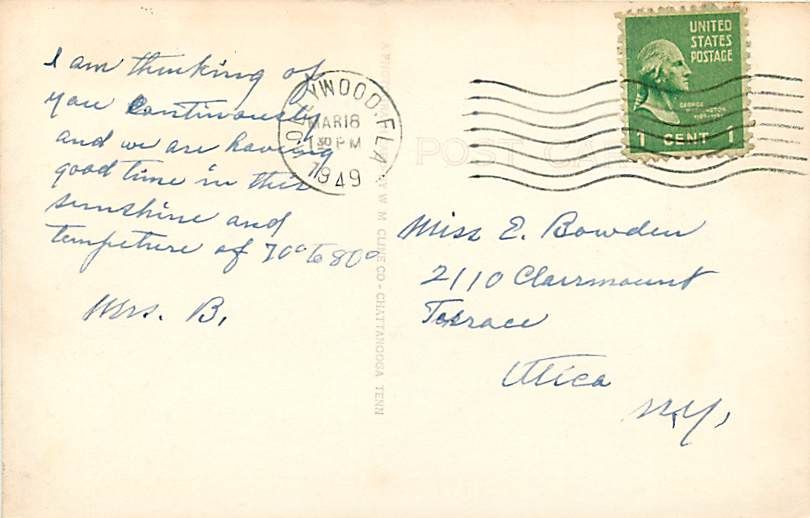 I am thinking of
you continuously
and we are having
good time in this
sunshine and
tempeture of 70° to 80°
Mrs. B.
HOLLYWOOD, FLA.
MAR 18
1 30 PM
1949
UNITED
STATES
POSTAGE
GEORGE
WASHINGTON
1 CENT 1
POST CA
BY W. M. CLINE CO - CHATTANOOGA TENN
Miss E. Bowden
2110 Clairmount
Terrace
Utica
N.Y.